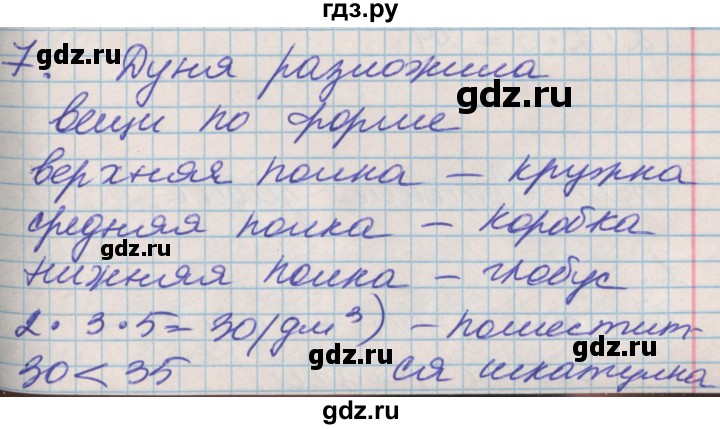 гдз.ру
7. Дуня разложила
вещи по форме
верхняя полка – кружка
средняя полка – коробка
нижняя полка – глобус
2 · 3 · 5 = 30 (дм³) – поместит-
30 < 35 ся шкатулка
gdz.ru
gdz.ru
gdz.ru
gdz.ru
gdz.ru
gdz.ru
gdz.ru
gdz.ru